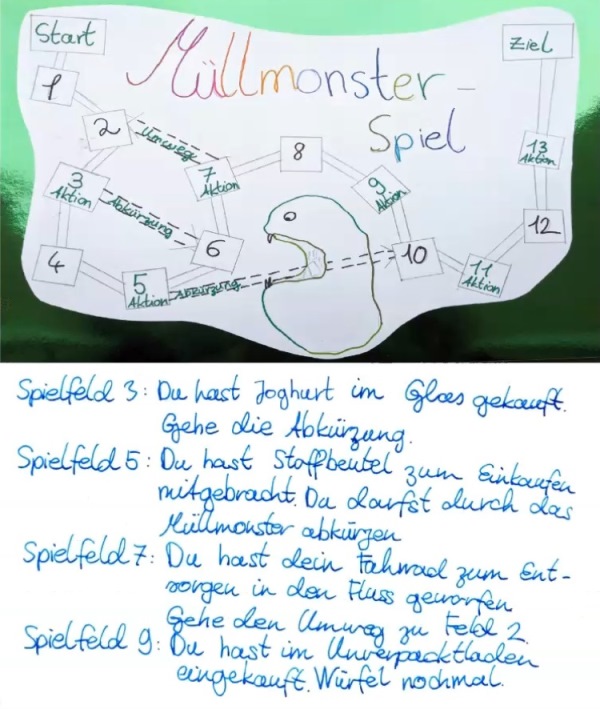 Start
Ziel
Müllmonster-
Spiel
1
2
Umweg
3
Aktion
Abkürzung
4
5
Aktion
Abkürzung
6
7
Aktion
8
9
Aktion
10
11
Aktion
12
13
Aktion
Spielfeld 3: Du hast Joghurt im Glas gekauft.
Gehe die Abkürzung.
Spielfeld 5: Du hast Stoffbeutel zum Einkaufen
mitgebracht. Du darfst durch das
Müllmonster abkürzen
Spielfeld 7: Du hast dein Fahrrad zum Ent-
sorgen in den Fluss geworfen
Gehe den Umweg zu Feld 2.
Spielfeld 9: Du hast im Unverpacktladen
eingekauft. Würfel nochmal.